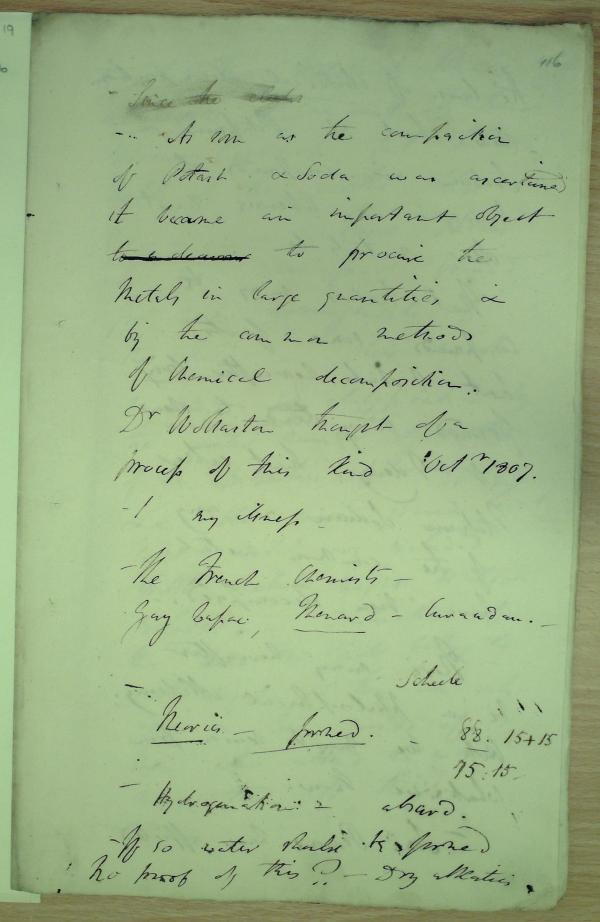 116
Since the
--- As soon as the composition
of Potash & Soda was ascertained
it became an important object
to procure the
Metals in large quantities &
by the common methods
of chemical decomposition.
Dr Wollaston thought of a
process of this kind Octr 1807.
- I my illness -
- The French Chemists -
Gay Lussac, Thenard - Curaudau. -
Scheele
- Theories - formed. - 88. 15+15
75:15
- Hydrogenation: = absurd.
- If so water should be formed
No proof of this? - Dry alkalies